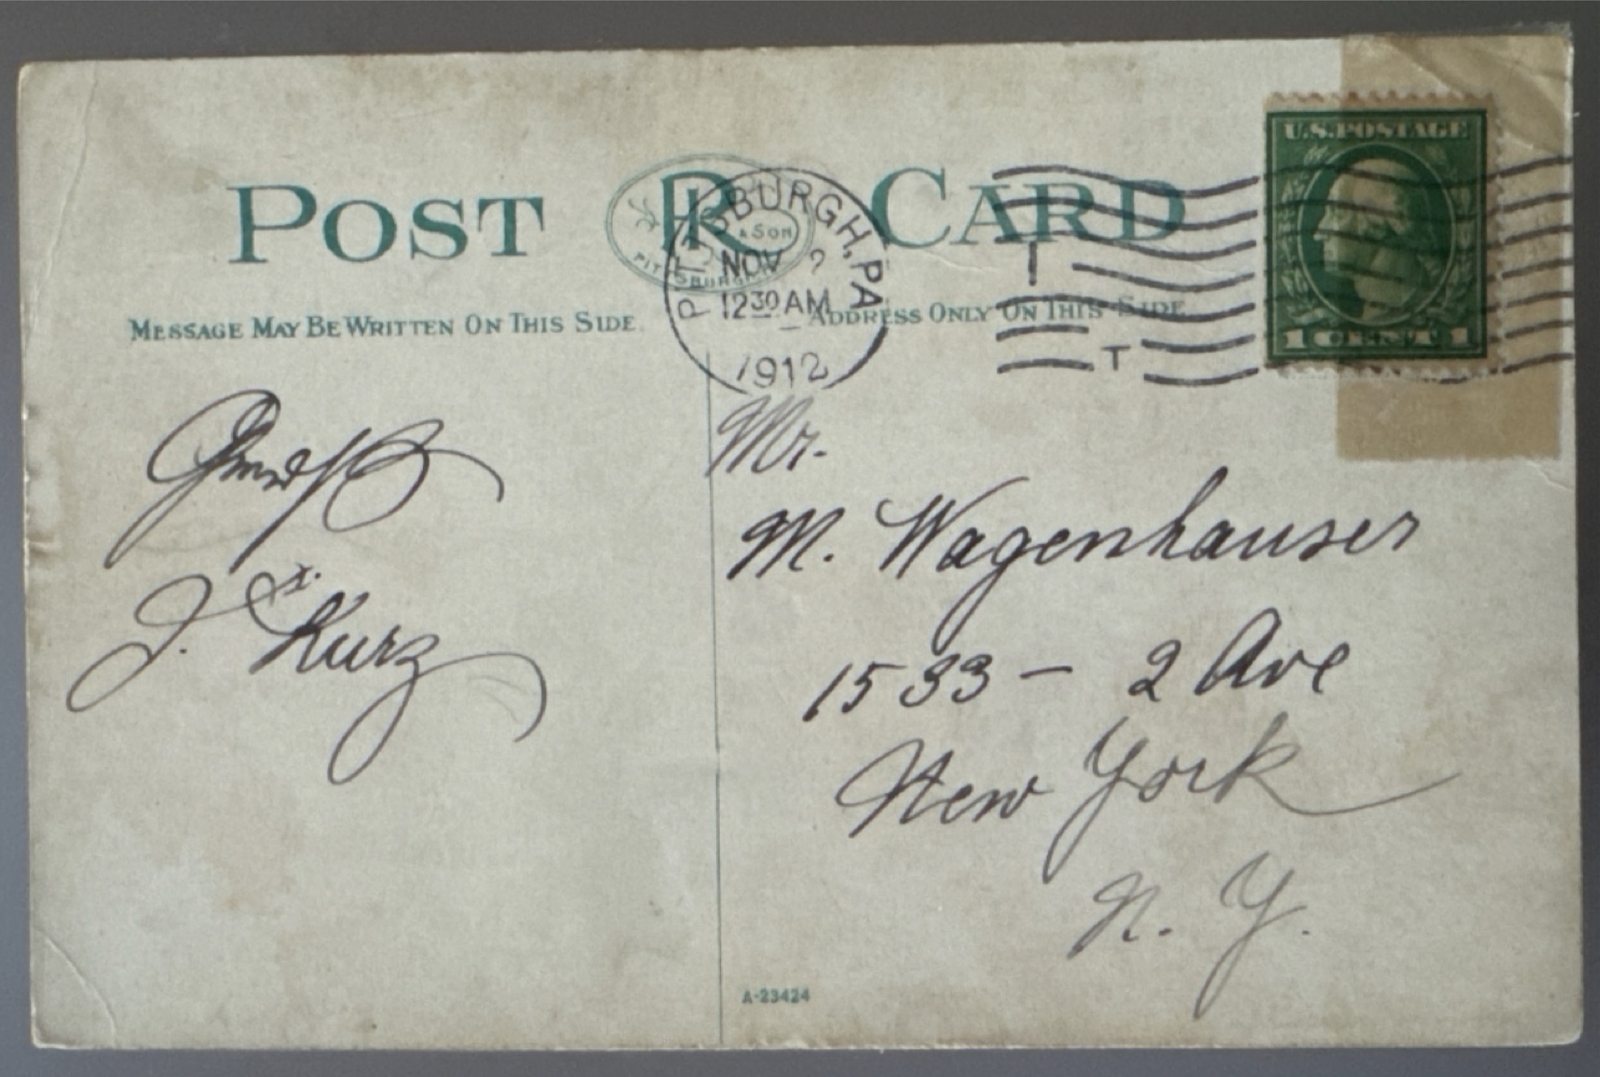 U.S. POSTAGE
POST CARD
R & SON
PITTSBURGH
PITTSBURGH, PA
NOV
12 30 AM
1912
T
T
1 CENT 1
MESSAGE MAY BE WRITTEN ON THIS SIDE.
ADDRESS ONLY ON THIS SIDE
J. Kurz
Mr.
M. Wagenhauser
1533 - 2 Ave
New York
N. Y.
A-23424